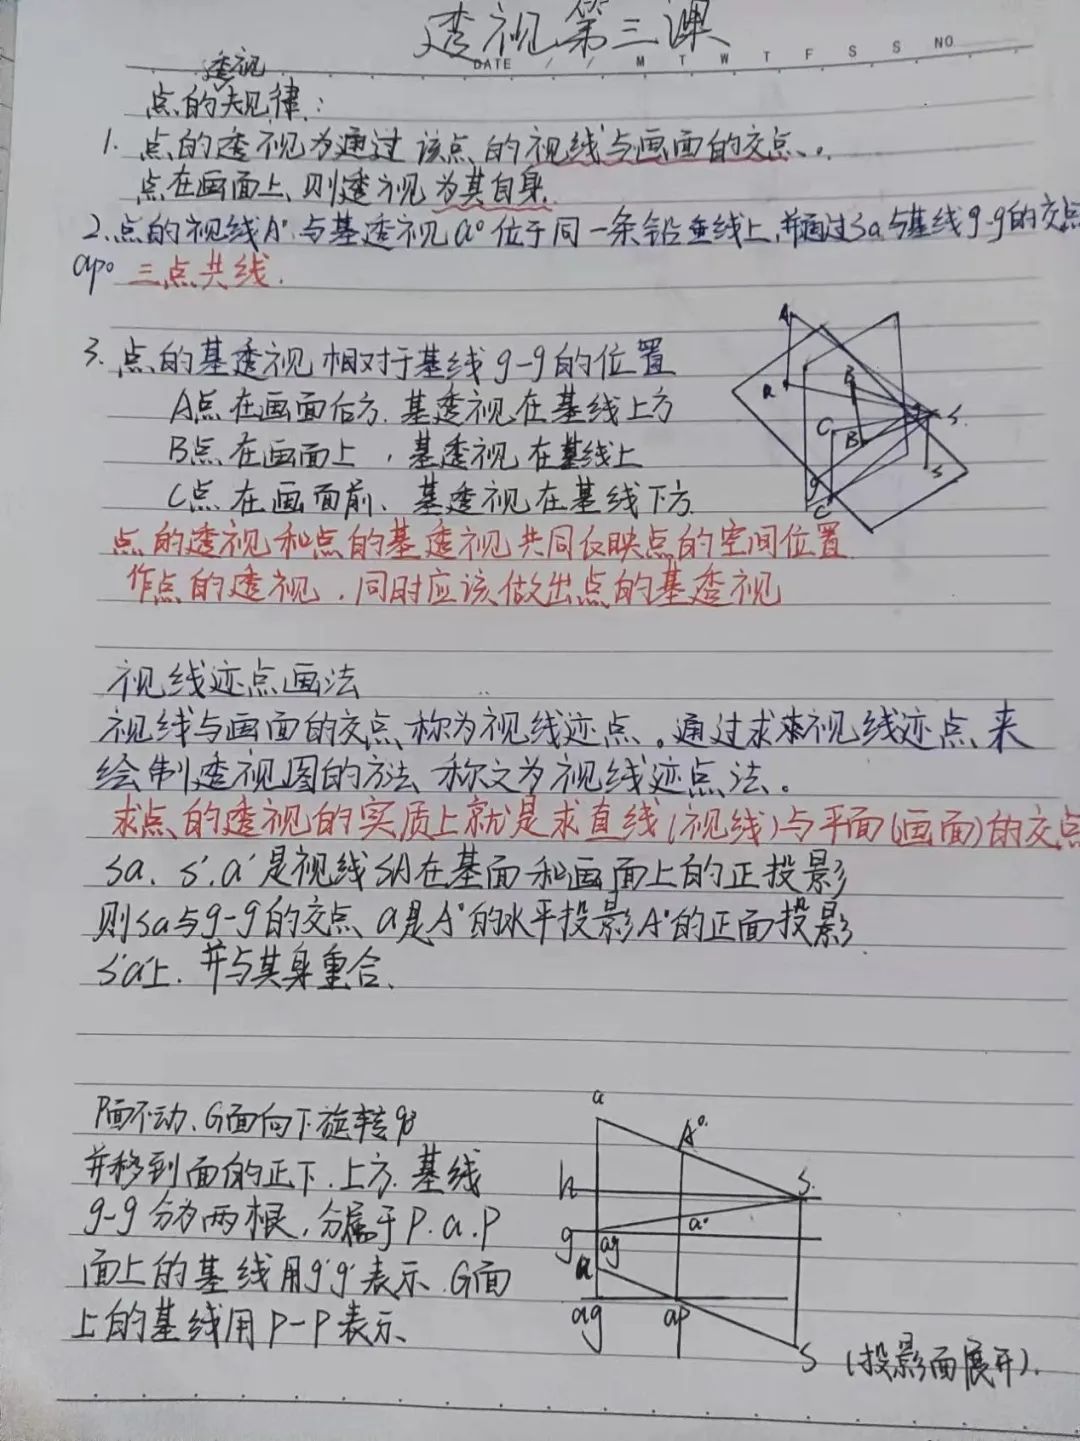 透视第三课
DATE / / M T W T F S S NO
透视
点的规律:
1. 点的透视为通过该点的视线与画面的交点。
点在画面上、则透视为其自身.
2.点的视线A°与基透视a°位于同一条铅垂线上,并通过sa与基线g-g的交点
ap。三点共线.
3.点的基透视相对于基线g-g的位置
A点在画面后方.基透视在基线上方
B点在画面上,基透视在基线上
C点在画面前、基透视在基线下方
点的透视和点的基透视共同反映点的空间位置
作点的透视,同时应该做出点的基透视
A
a
B
C
B
g
C
S.
s
视线迹点画法
视线与画面的交点、称为视线迹点。通过求视线迹点、来
绘制透视图的方法称之为视线迹点法。
求点的透视的实质上就是求直线(视线)与平面(画面)的交点
sa、s'.a'是视线SA在基面和画面上的正投影
则sa与g-g的交点a是A°的水平投影A°的正面投影
s'a'上.并与其身重合、
P面不动、G面向下旋转90°
并移到面的正下.上方.基线
g-g分为两根,分属于P.a.P
面上的基线用g'g'表示.G面
上的基线用P-P表示、
a
A°
h
S.
g
ag
a°
a
ag
ap
S
(投影面展开).